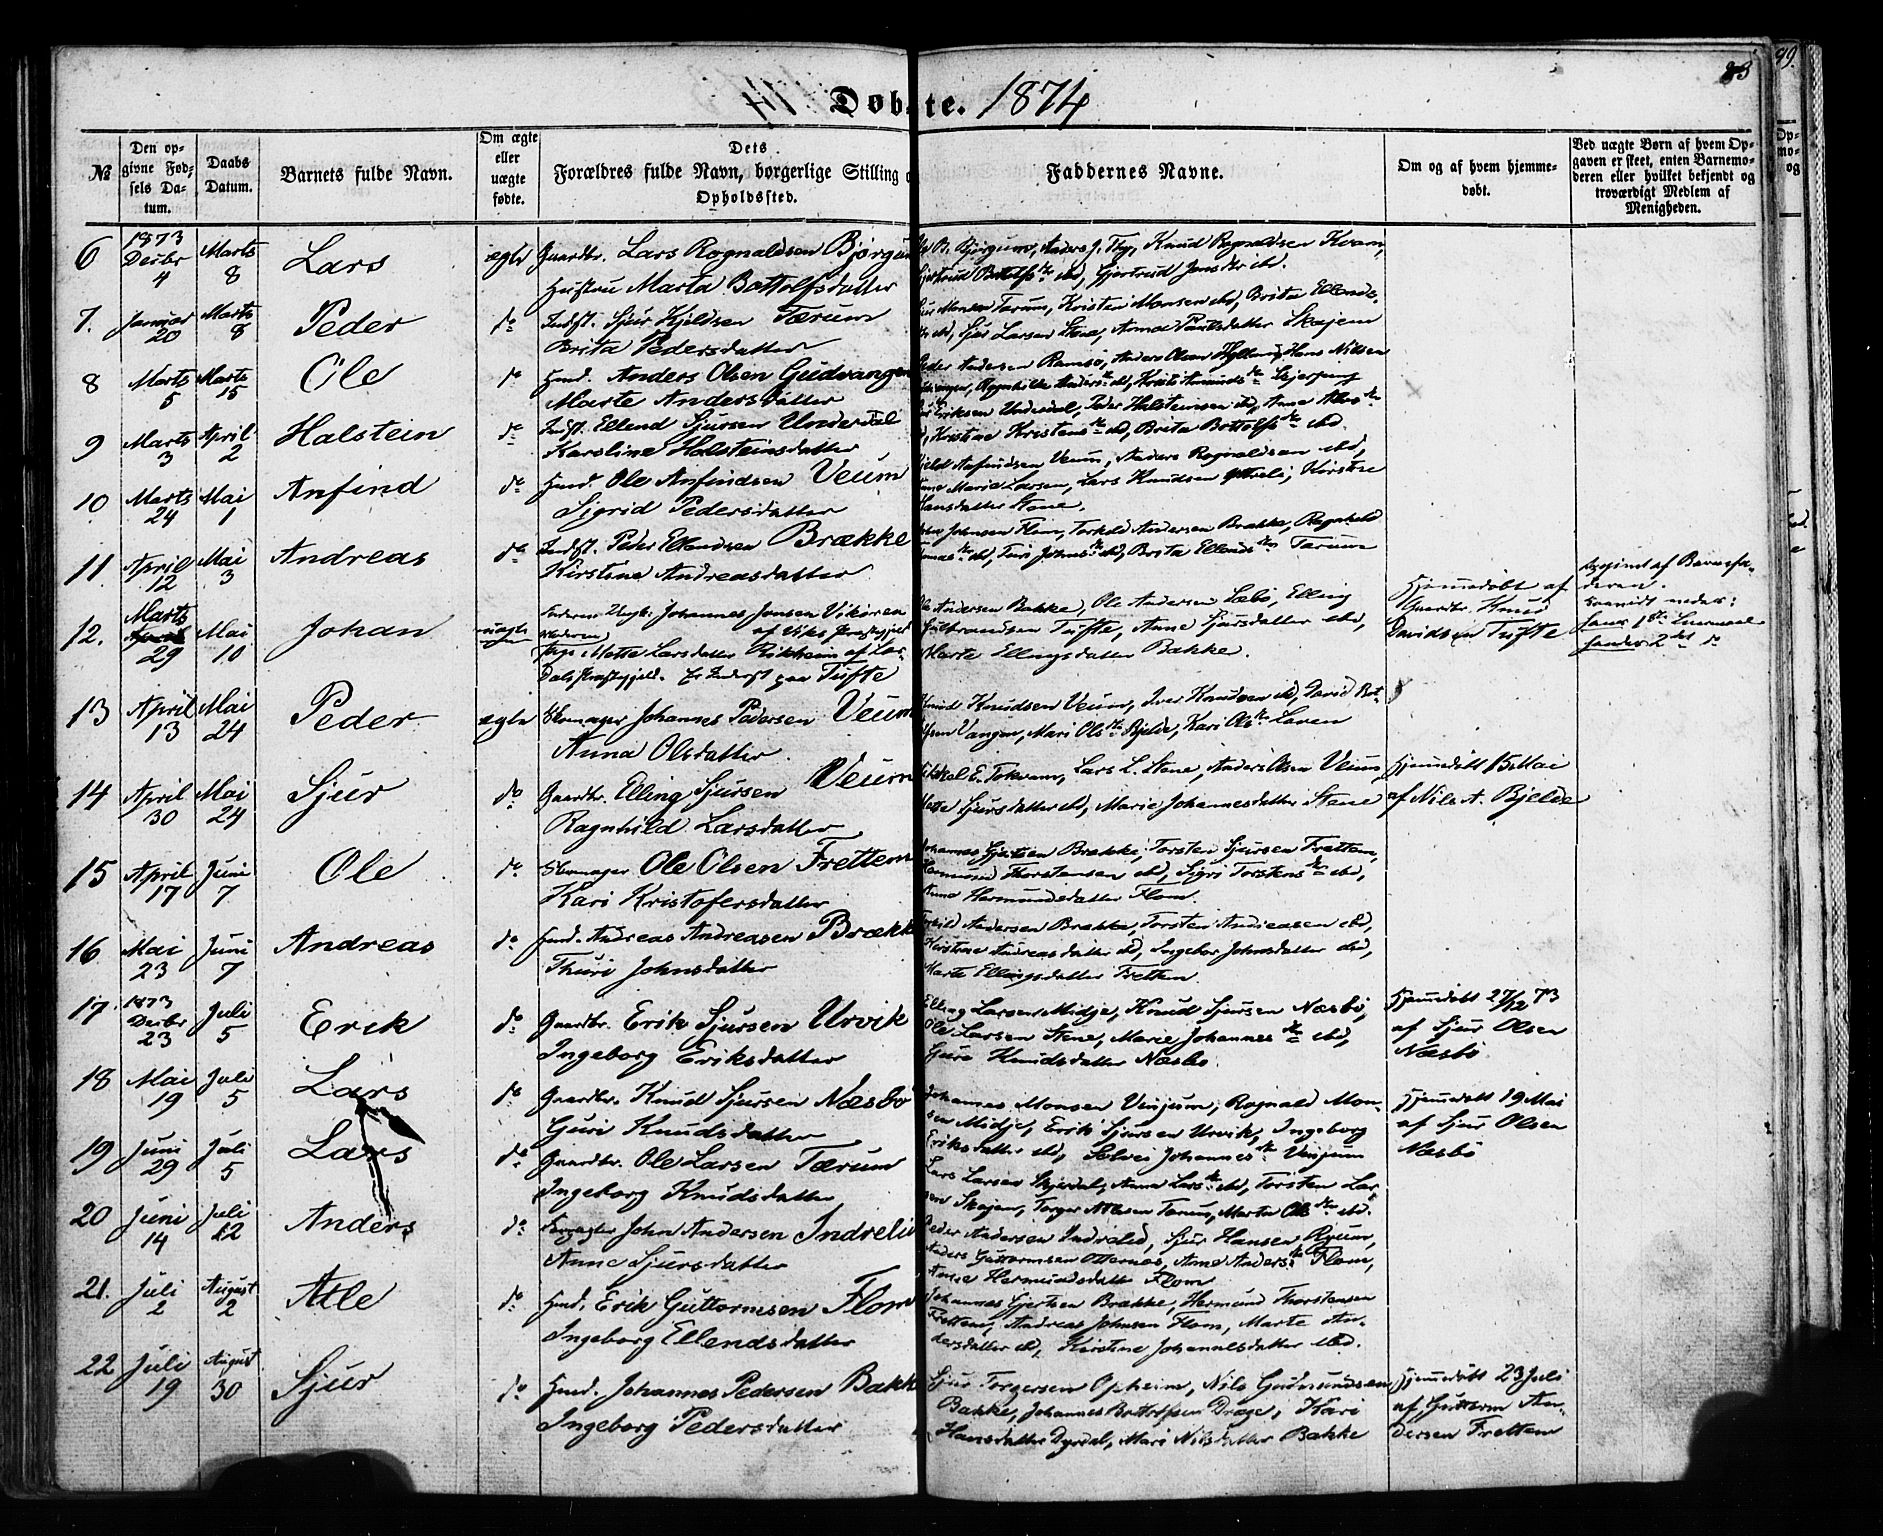 Døbte. 1874
83
99.
№
Den opgivne Fødsels Datum.
Daabs Datum.
Barnets fulde Navn.
Om ægte eller uægte fødte.
Dets Forældres fulde Navn, borgerlige Stilling
Opholdssted.
Faddernes Navne.
Om og af hvem hjemmedøbt.
Ved uægte Børn af hvem Opgaven er skeet, enten Barnemoderen eller hvilket bekjendt og troværdigt Medlem af Menigheden.
6 1873 Decbr 4 Marts 8 Lars ægte Gaardbr. Lars Rognaldsen Bjørgum
Hustru Marta Bottolfsdatter
B. Bjørgum, Anders J. Thy, Knud Rognaldsen Kvam,
Gjertrud Bottolfsdr ibd, Gjertrud Jonsdr ibd.
7. Januar 20 Marts 8 Peder do Indst. Sjur Kjeldsen Tærum
Brita Pedersdatter
Monsen Tærum, Kristen Monsen ibd, Brita Ellends-
ibd, Sjur Larsen Stene, Anna Paulsdatter Skajem
8 Marts 5 Marts 15 Ole do Huusd. Anders Olsen Gudvangen
Marte Andersdatter
Peder Andersen Ramsø, Anders Olsen Hylland, Hans Nilsen
Ragnhilda Andersdr ibd,
9 Marts 3 April 2 Halstein do Indst. Ellend Sjursen Underdal
Karoline Halsteinsdatter
Eriksen Underdal, Peder Halsteinsen ibd, Anna Atlesdr
Kristine Kristensdr ibd, Brita Bottolfsdr ibd.
10 Marts 24 Mai 1 Anfind do Huusd. Ole Anfindsen Veum
Sigrid Pedersdatter
Kjeld Anfindsen Veum, Anders Rognaldsen ibd,
Anne Marie Larsen, Lars Knudsen Ytreli, Kirstine
Hansdatter Stene.
11 April 12 Mai 3 Andreas do Indst. Peder Ellendsen Brække
Kirstene Andreasdatter
Johnsen Flom, Torkild Andersen Brække, Ragnhild
ibd, Turi Johnsdr ibd, Brita Ellendsdr Tærum
12. Marts 29 Mai 10 Johan uægte
Faderen Ungk. Johannes Jonsen Vikøren
af Viks Præstegjeld
Moderen
Pige Mette Larsdatter Rikheim af Lær-
dals Præstegjeld. Er Inderst paa Tufte
Ole Andersen Bakke, Ole Andersen Læbø, Elling
Gulbrandsen Tufte, Anne Sjursdatter ibd,
Marte Ellingsdatter Bakke.
Hjemmedøbt af
Gaardbr. Knud
Davidsen Tufte
Opgivet af Barnefa-
deren.
13 April 13 Mai 24 Peder ægte Skomager Johannes Pedersen Veum
Anna Olsdatter
Knud Knudsen Veum, Iver Knudsen ibd, David Bot-
olfsen Vangen, Mari Olsdr Bjelde, Kari Olsdr Loven
14 April 30 Mai 24 Sjur do Gaardbr. Elling Sjursen Veum
Ragnhild Larsdatter
E. Tokvam, Lars L. Stene, Anders Olsen Veum,
Mette Sjursdatter ibd, Marie Johannesdatter Stene
Hjemmedøbt 15 Mai
af Nils A. Bjelde
15 April 17 Juni 7 Ole do Skomager Ole Olsen Frettem
Kari Kristofersdatter
Johannes Gjertsen Brække, Torsten Sjursen Frettem,
Hermund Thorstensen ibd, Sigri Torstensdr ibd,
Anna Hermundsdatter Flom.
16 Mai 23 Juni 7 Andreas do Huusd. Andreas Andreasen Brække
Thuri Johnsdatter
Torkild Andersen Brække, Torsten Andreasen ibd,
Kirstine Andreasdatter ibd, Ingebor Johnsdatter ibd,
Marte Ellingsdatter Frettem.
17. 1873 Decbr 23 Juli 5 Erik do Gaardbr. Erik Sjursen Urvik
Ingeborg Eriksdatter
Elling Larsen Midje, Knud Sjursen Næsbø,
Ole Larsen Stene, Marie Johannesdr ibd,
Guro Knudsdatter Næsbø.
Hjemmedøbt 27/12 73
af Sjur Olsen
Næsbø
18 Mai 19 Juli 5 Lars do Gaardbr. Knud Sjursen Næsbø
Guri Knudsdatter
Johannes Monsen Vinjum, Rognald Mon-
sen Midje, Erik Sjursen Urvik, Ingeborg
Eriksdatter ibd, Solvei Johannesdr Vinjum
Hjemmedøbt 19 Mai
af Sjur Olsen
Næsbø
19 Juni 29 Juli 5 Lars do Gaardbr. Ole Larsen Tærum
Ingeborg Knudsdatter
Lars Larsen Skjerdal, Anna Larsdr ibd, Torsten Lar-
sen Skajem, Torger Atlesen Tærum, Marta Olsdr ibd.
20 Juni 14 Juli 12 Anders do John Andersen Indrelid
Anne Sjursdatter
Peder Andersen Indrelid, Sjur Hansen Ryum,
Anders Guttormsen Otternes, Anne Andersdr Flom,
Anne Hermundsdatt Flom
21. Juli 2 August 2 Atle do Huusd. Erik Guttormsen Flom
Ingeborg Ellendsdatter
Johannes Gjertsen Brække, Hermund Thorstensen
Frettem, Andreas Johnsen Flom, Marte An-
dersdatter ibd, Kirstine Johannesdatter ibd.
22 Juli 19 August 30 Sjur do Huusd. Johannes Pedersen Bakke
Ingeborg Pedersdatter
Sjur Torgersen Opheim, Nils Gudmundsen
Bakke, Johannes Bottolfsen Drage, Kari
Hansdatter Dyrdal, Mari Nilsdatter Bakke
Hjemmedøbt 23 Juli
af Guttorm An-
dersen Frettem